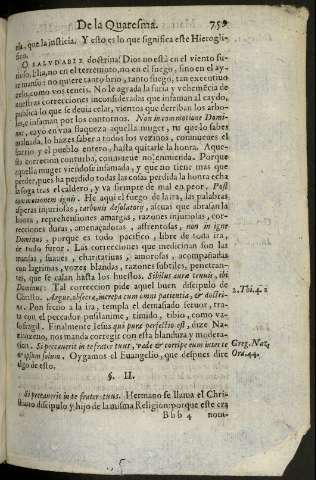 De la Quaresma. 759
cia, que la justicia. Y esto es lo que significa este Hierogli-
fico.
O SALVDABLE doctrina! Dios no está en el viento fu-
rioso, Elia, no en el terremoto, no en el fuego, sino en el ay-
re manso: no quiere tanto brio, tanto fuego, tan executiuo
zelo, como vos teneis. No le agrada la furia y vehemēcia de
nuestras correcciones inconsideradas que infaman al caydo,
publica lo que se deuia celar, vientos que derriban los arbo-
les, e infaman por los contornos. Non in commotione Domi-
nus, cayo en vna flaqueza aquella muger, no que lo sabes
maltratado, lo hazes saber a todos los vezinos, conmueues el
barrio y el pueblo entero, hasta quitarle la honra. Aque-
sta correccion conturba, conmueue no enmienda. Porque
aquella muger viendose infamada, y que no tiene mas que
perder, pues ha perdido todas las cosas perdida la honra echa
la soga tras el caldero, y va siempre de mal en peor. Post
commotionem ignis. He aqui el fuego de la ira, las palabras
asperas injuriosas, carbonis desolatorij, ascuas que abrasan la
honra, reprehensiones amargas, razones injuriosas, cor-
recciones duras, amenaçadoras, affrentosas, non in igne
Dominus, porque es todo pacifico, libre de toda ira,
de todo furor. Las correcciones que medicinan son las
mansas, suaues, charitatiuas, amorosas, acompañadas
con lagrimas, vozes blandas, razones subtiles, penetran-
tes, que se calan hasta los huessos. Sibilus auræ tenuis, ibi
Dominus. Tal correccion pide aquel buen discipulo de
Christo. Argue, obsecra, increpa cum omni patientia, & doctri-
2. Thi. 4. 2
na. Pon freno a la ira, templa el demasiado feruor, tra-
ta con el peccador pusilanime, timido, tibio, como va-
so fragil. Finalmente Iesus qui pura perfectio est, dize Na-
zianzeno, nos manda corregir con esta blandura y modera-
cion. Si peccauerit in te frater tuus, vade & corripe eum inter te
Greg. Naz.
& ipsum solum. Oygamos el Euangelio, que despues dire
Ora. 44.
algo de esto.
§. II.
Si peccauerit in te frater tuus. Hermano se llama el Chri-
stiano discipulo y hijo de la misma Religion: porque este era
Bbb 4 nom-